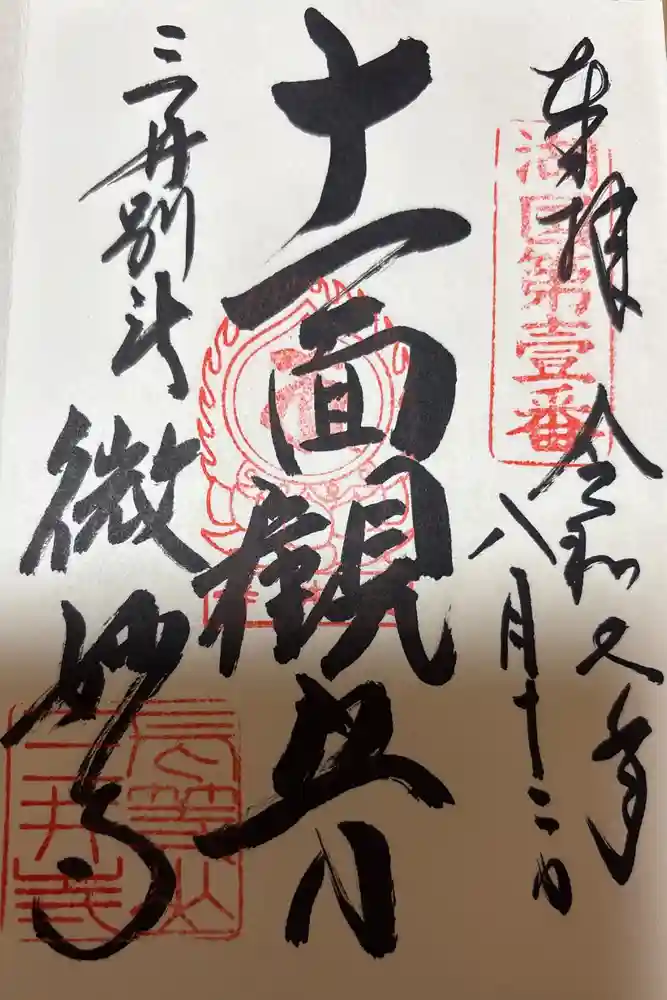 奉拝
湖国第壹番
令和年
八月十二日
十一面觀音
三井別所
微妙寺
長等山
三井寺